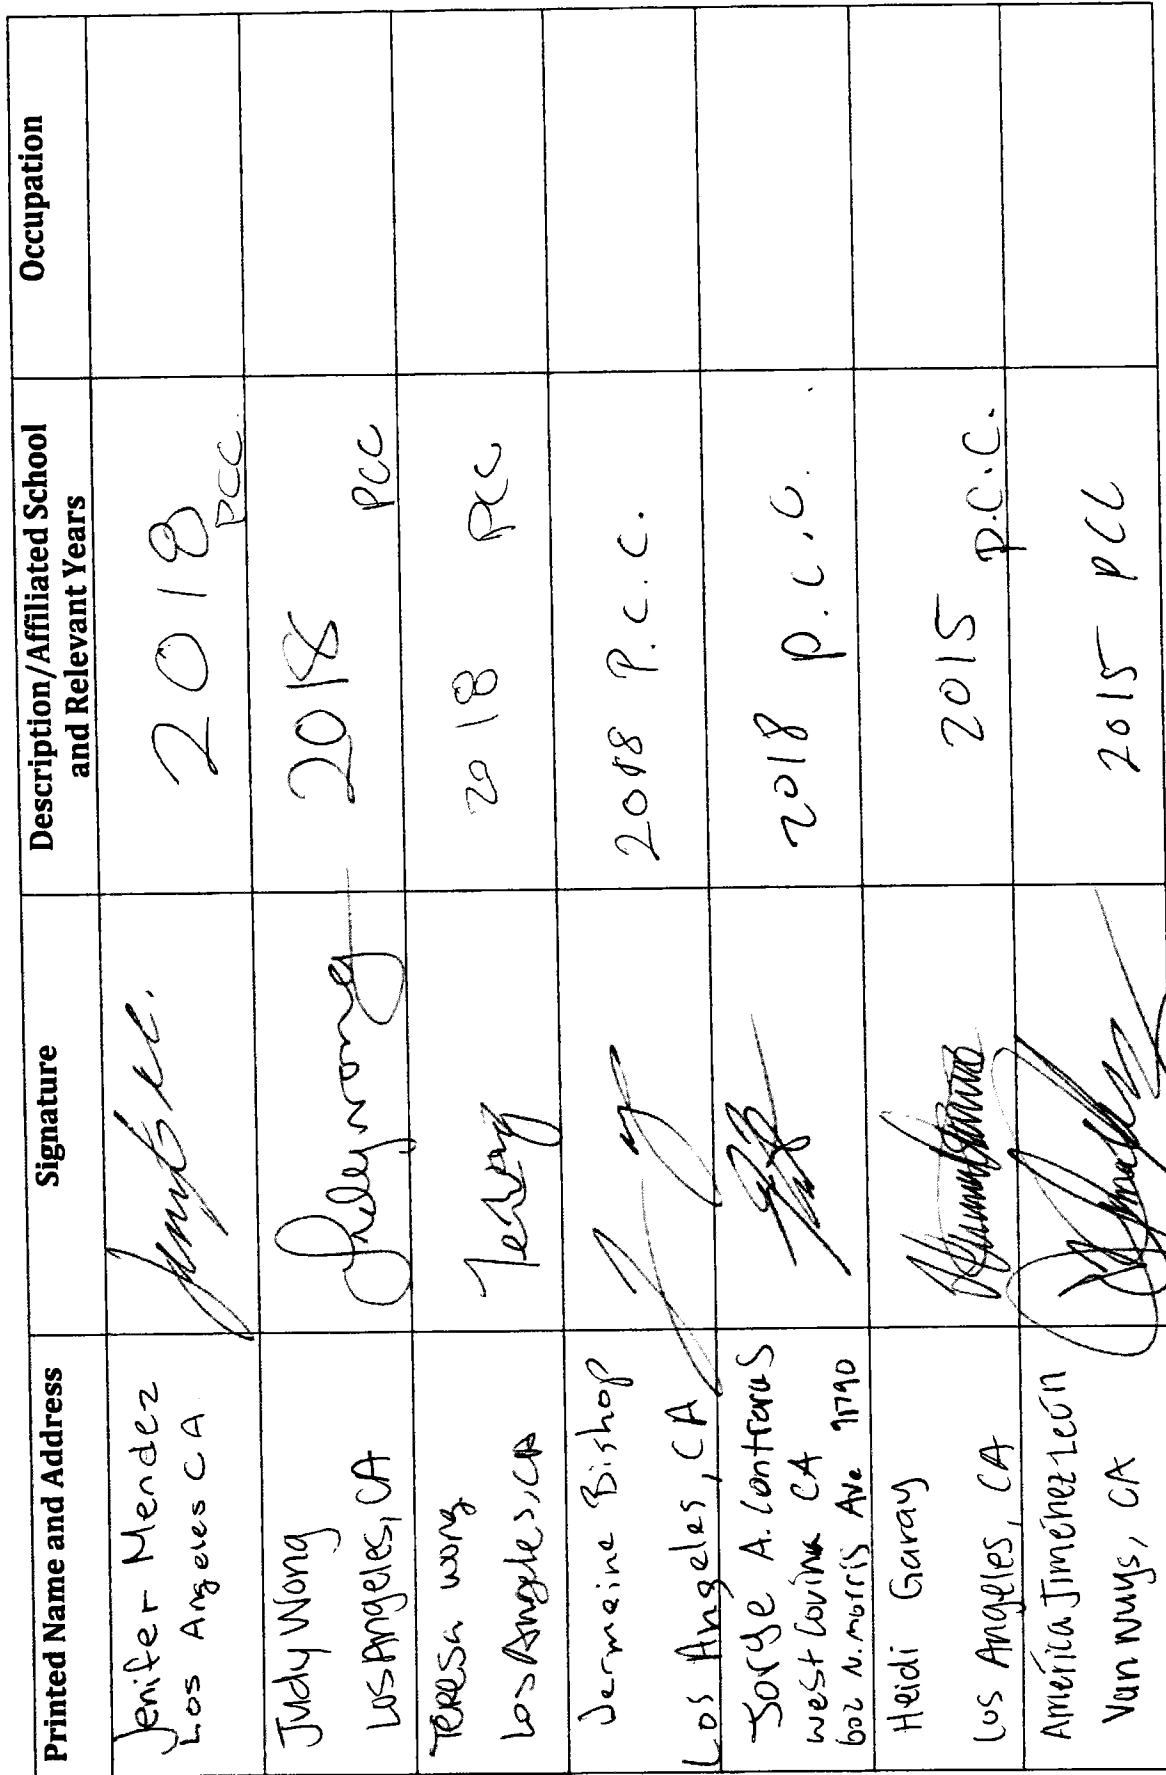 Printed Name and Address
Signature
Description/Affiliated School
and Relevant Years
Occupation
Jenifer Mendez
Los Angeles CA
2018
PCC.
Judy Wong
Los Angeles, CA
Judy Wong
2018
PCC
Teresa Wong
Los Angeles, CA
2018 PCC
Jermaine Bishop
Los Angeles, CA
2018 P.C.C.
Jorge A. Contreras
West Covina CA
602 N. Morris Ave 91790
2018 P.C.C.
Heidi Garay
Los Angeles, CA
2015 P.C.C.
América Jiménez León
Van Nuys, CA
2015 PCC